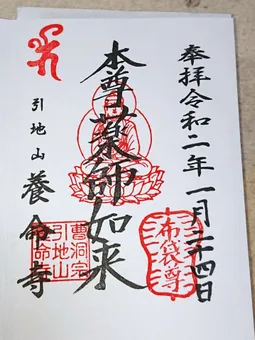 奉拝令和二年一月二十四日
本尊薬師如来
引地山養命寺
布袋尊
曹洞宗
引地山
養命寺